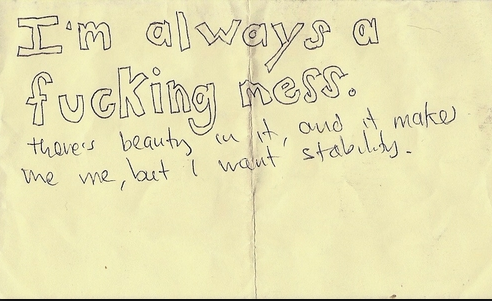 I'm always a
fucking mess.
there's beauty in it, and it makes
me me, but i want stability.